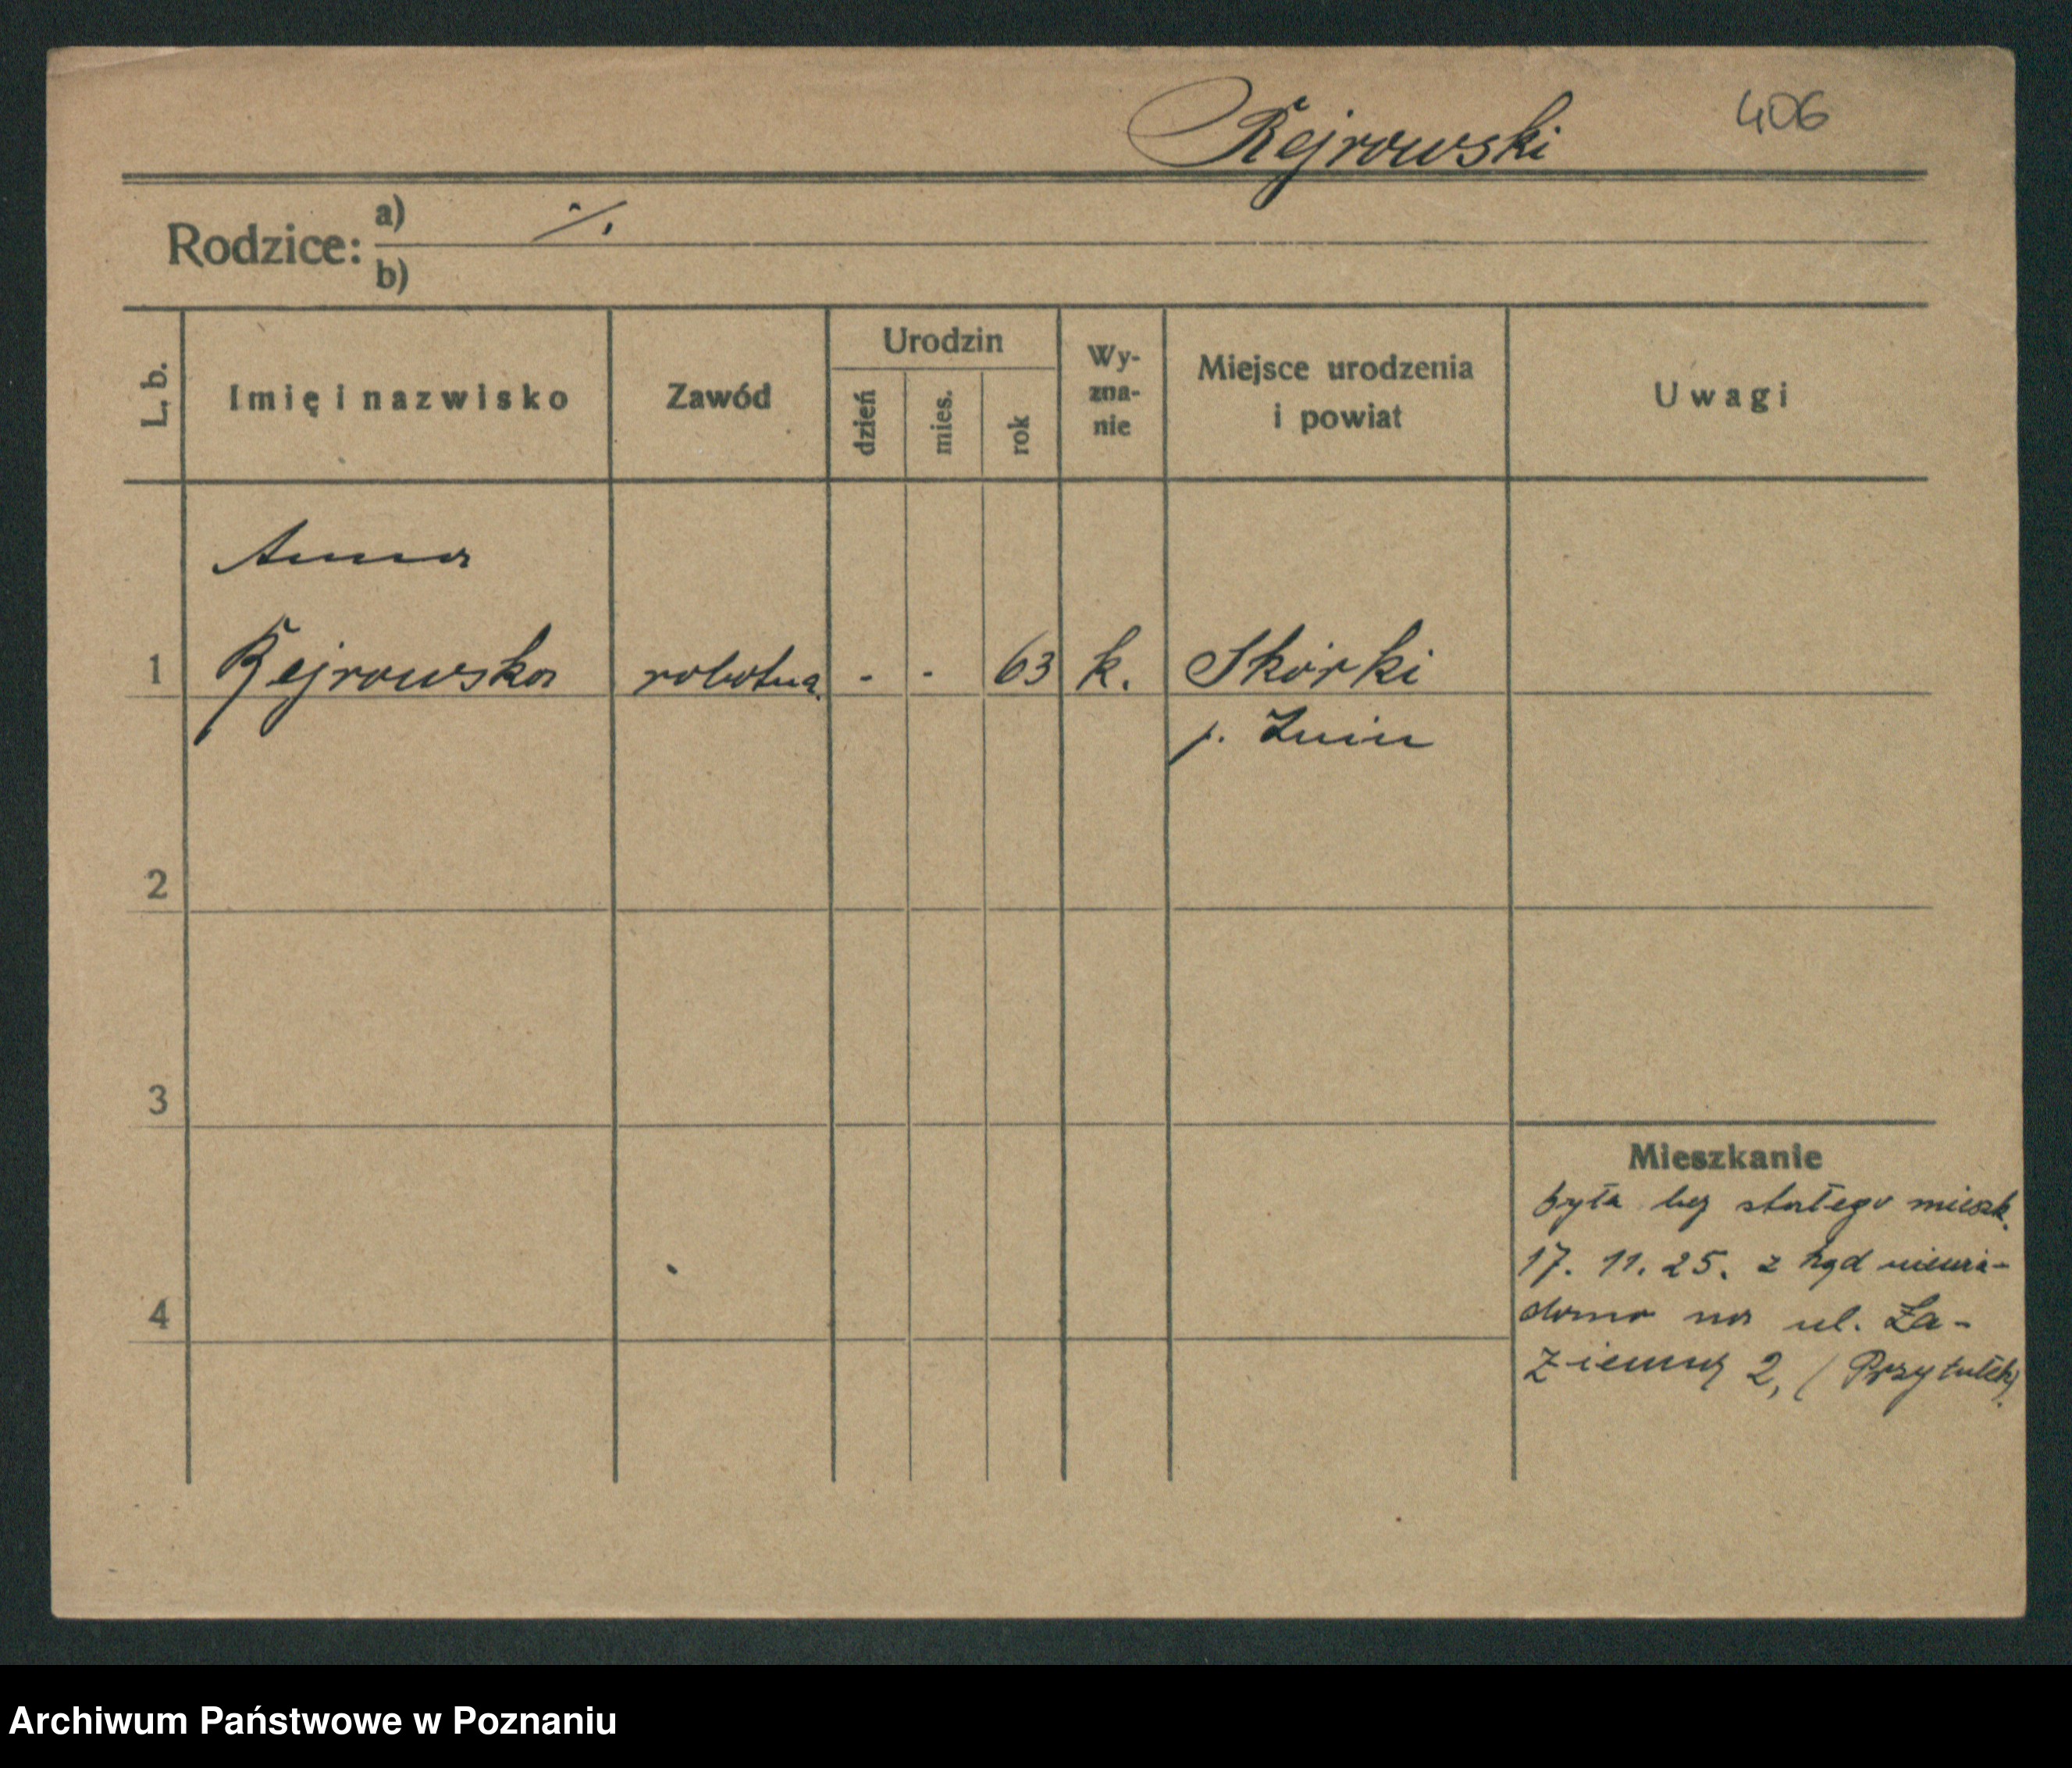 Rejrowski 406
Rodzice: a) ./.
b)
L. b. Imię i nazwisko Zawód Urodzin dzień mies. rok Wy-zna-nie Miejsce urodzenia i powiat Uwagi
Anna
1 Rejrowska robotna. - - 63 k. Skórki
p. Żnin
2
3
Mieszkanie
była bez stałego mieszk.
17. 11. 25. z kąd niewia-
4
domo na ul. Ła-
zienną 2, (Przytułek)
Archiwum Państwowe w Poznaniu